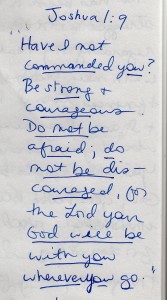 Joshua 1:9
"Have I not
commanded you?
Be strong &
courageous.
Do not be
afraid; do
not be dis-
couraged, for
the Lord your
God will be
with you
wherever you go."